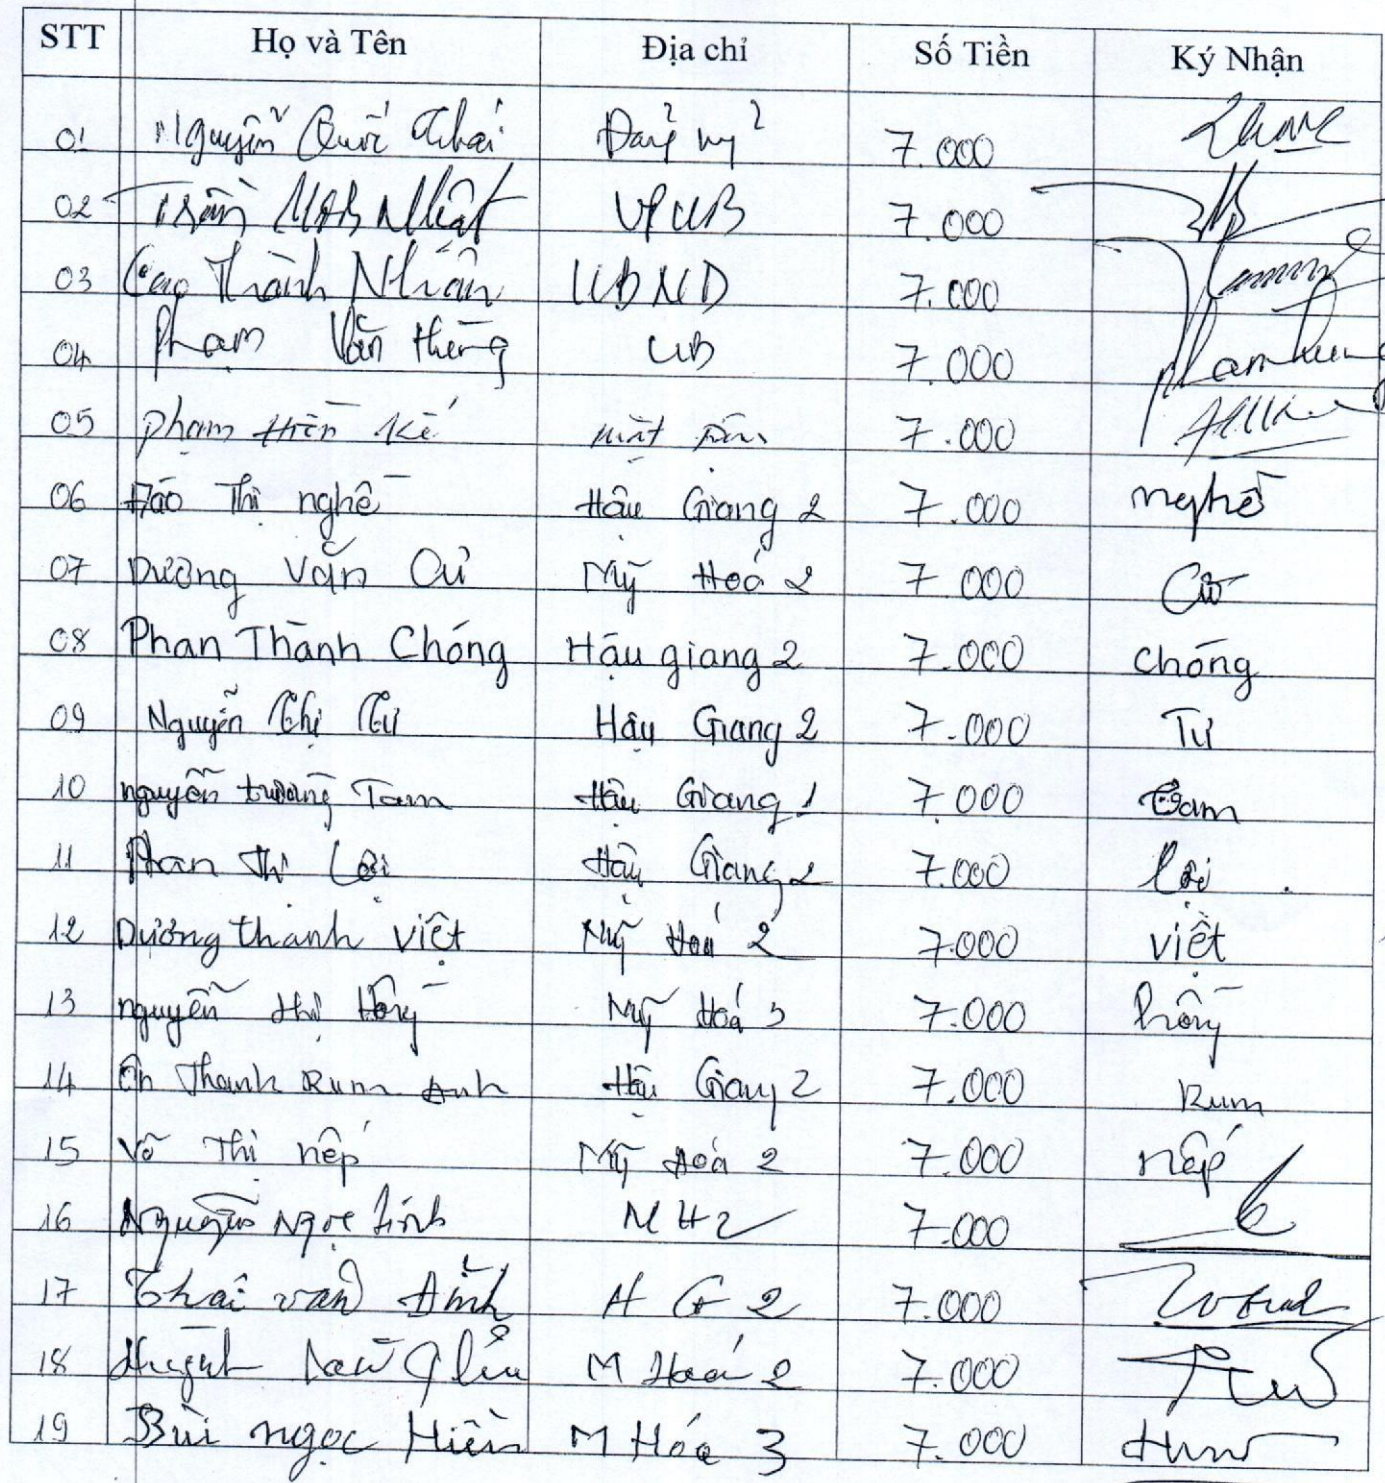 STT Họ và Tên Địa chỉ Số Tiền Ký Nhận
01 Nguyễn Quốc Thái Đảng uỷ 7.000
02 Trần Nhật VPUB 7.000
03 Cao Thành Nhân UBND 7.000
04 Phạm Văn thắng UB 7.000
05 Phạm Hiền Kế mặt trận 7.000
06 Đào Thị nghề Hậu Giang 2 7.000 nghề
07 Dương Văn Cư Mỹ Hoá 2 7.000 Cư
08 Phan Thành Chóng Hậu giang 2 7.000 chóng
09 Nguyễn Thị Tư Hậu Giang 2 7.000 Tư
10 nguyễn trường Tam Hậu Giang 1 7.000 Tam
11 Phan Thị Lợi Hậu Giang 2 7.000 lợi
12 Dương thanh Việt Mỹ Hoá 2 7.000 việt
13 nguyễn thị Hồng Mỹ Hoá 3 7.000 hồng
14 Ôn Thanh Rum Anh Hậu Giang 2 7.000 Rum
15 Võ Thị nếp Mỹ Hoá 2 7.000 nếp
16 Nguyễn Ngọc MH2 7.000
17 Thái văn Đình HG2 7.000
18 Huỳnh M Hoá 2 7.000
19 Bùi ngọc Hiền M Hóa 3 7.000